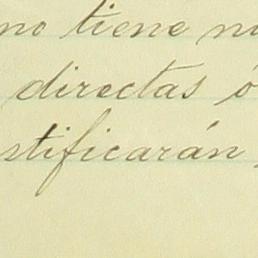 no tiene n
directas ó
stificarán